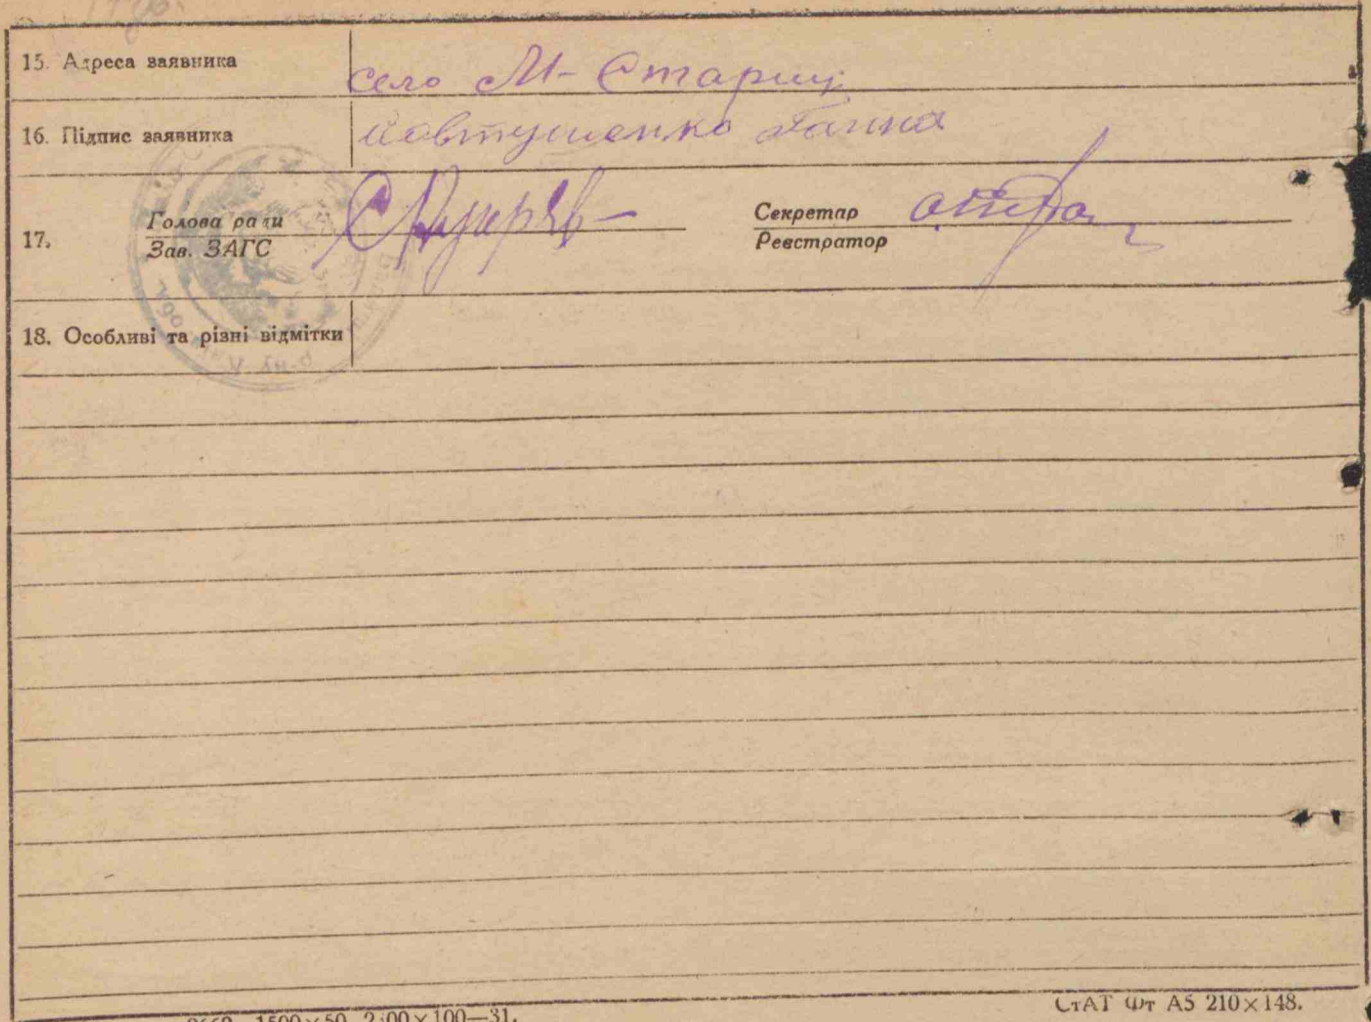 15. Адреса заявника село М-Стариц
16. Підпис заявника Ковтушенко Ганна
17. Голова ради Секретар
Зав. ЗАГС Реєстратор
18. Особливі та різні відмітки
1500×50 100—31. СтАТ Фт А5 210×148.